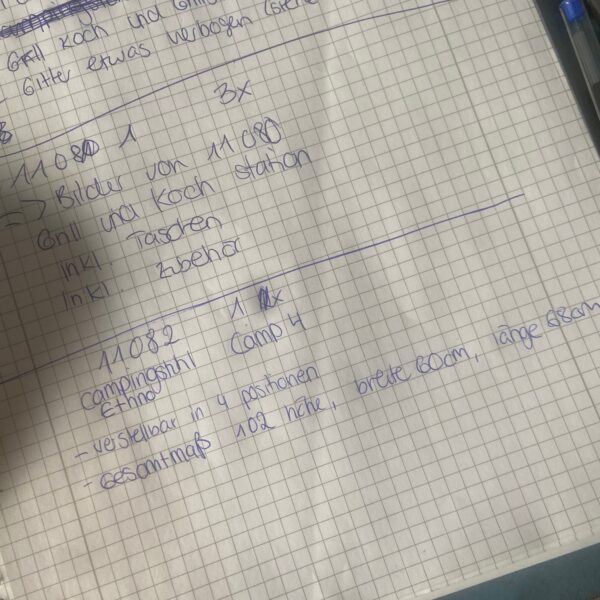 Grill Koch und
- Gitter etwas verbogen
3x
11081
=> Bilder von 11080
Grill und Koch station
inkl. Taschen
Inkl. Zubehör
11082 1 x
Campingstuhl Camp 4
Ethno
- verstellbar in 4 positionen
- Gesamtmaß 102 höhe, breite 60cm, länge 68cm